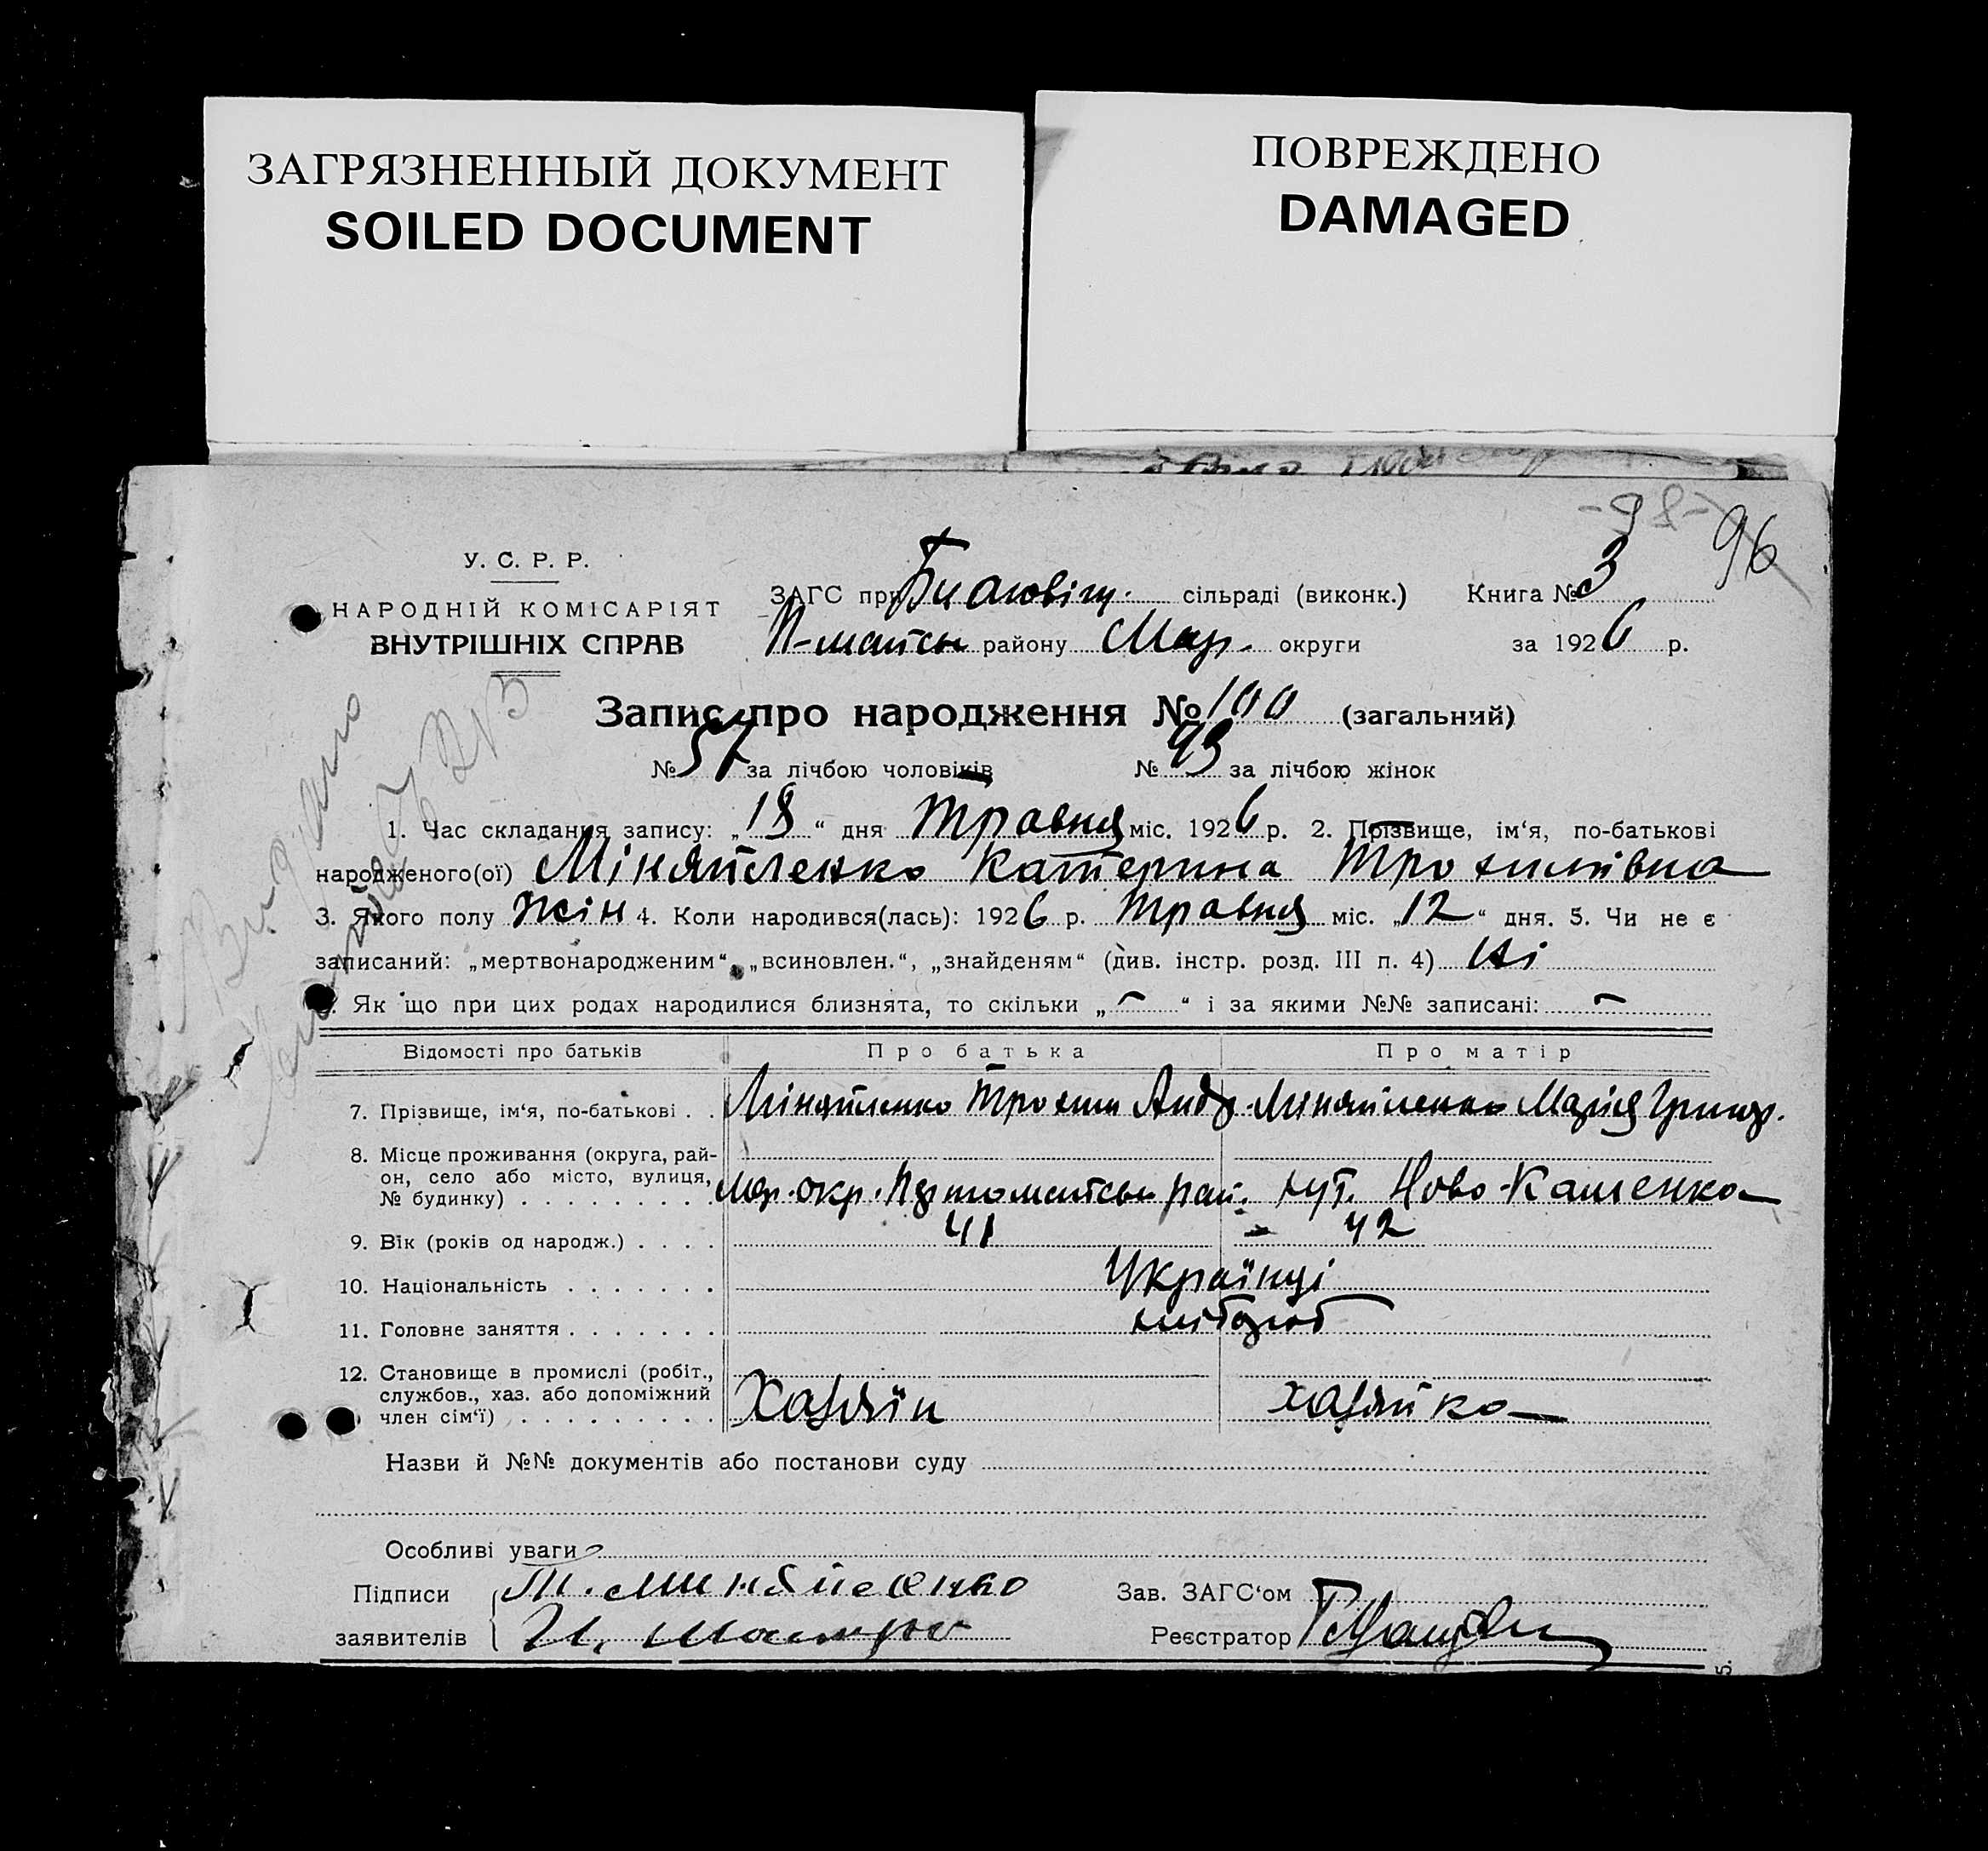 ЗАГРЯЗНЕННЫЙ ДОКУМЕНТ
SOILED DOCUMENT
ПОВРЕЖДЕНО
DAMAGED
96
У. С. Р. Р.
НАРОДНІЙ КОМІСАРІЯТ
ВНУТРІШНІХ СПРАВ
ЗАГС при сільраді (виконк.) Книга № 3
району Мар. округи за 1926 р.
Запис про народження № 100 (загальний)
№ 57 за лічбою чоловіків № 93 за лічбою жінок
1. Час складання запису: „18“ дня Травня міс. 1926 р. 2. Прізвище, ім‘я, по-батькові
народженого(ої) Міняйленко Катерина Трохимівна
3. Якого полу жін 4. Коли народився(лась): 1926 р. Травня міс. „12“ дня. 5. Чи не є
записаний: „мертвонародженим“, „всиновлен.“, „знайденям“ (див. інстр. розд. III п. 4) Ні
Як що при цих родах народилися близнята, то скільки „—“ і за якими №№ записані: —
Відомості про батьків Про батька Про матір
7. Прізвище, ім‘я, по-батькові . . Міняйленко Трохим Андр. Міняйленко Марія Григор.
8. Місце проживання (округа, рай-
он, село або місто, вулиця,
№ будинку) . . . . . . . . . Мар. окр. Першомайськ рай. хут. Ново-Кашенко
9. Вік (років од народж.) . . . . 41 42
10. Національність . . . . . . . Українці
11. Головне заняття . . . . . . . хлібороб
12. Становище в промислі (робіт.,
службов., хаз. або допоміжний
член сім‘ї) . . . . . . . . . Хазяїн хазяйка
Назви й №№ документів або постанови суду
Особливі уваги
Підписи Т. Миняйленко Зав. ЗАГС‘ом
заявителів Реєстратор
5.